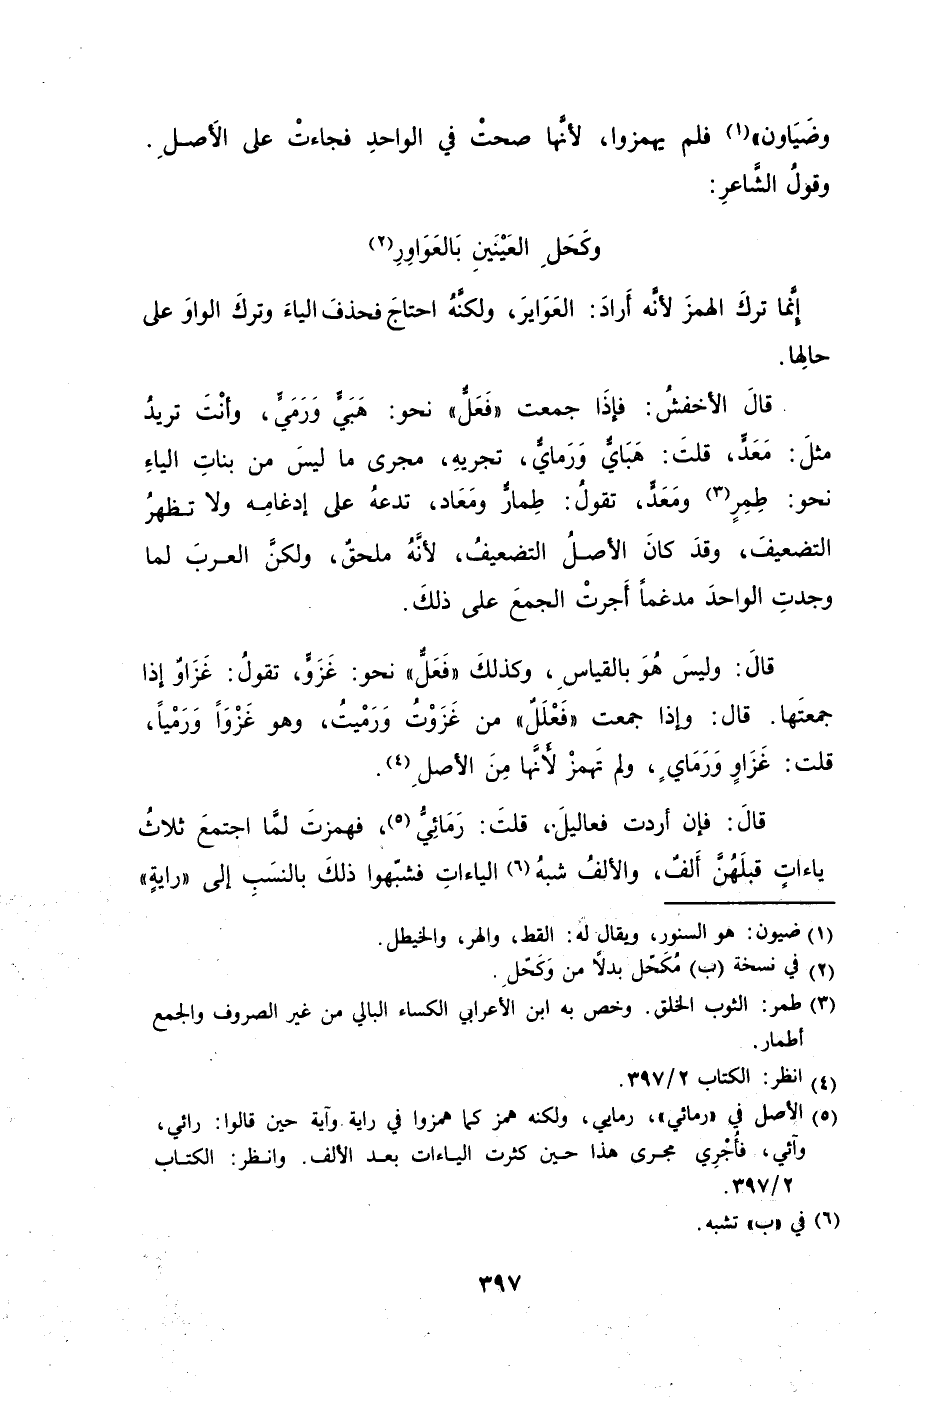 وضَيَاون»(١) فلم يهمزوا، لأنَّها صحتْ في الواحدِ فجاءتْ على الاَصلِ .
وقولُ الشَّاعرِ :
وكَحَلِ العَيْنَينِ بَالعَوَاوِرِ(٢)
إنَّما تركَ الهمزَ لأنَّه أَرادَ: العَوَايرَ، ولكنَّهُ احتاجَ فحذفَ الياءَ وتركَ الواوَ على
حالِها .
قالَ الأخفشُ: فإذَا جمعت «فَعَلٌّ» نحو: هَبَيٍّ وَرَمَيٍّ، وأنْتَ تريدُ
مثلَ: مَعَدٍّ، قلتَ: هَبَايٌّ وَرَمايٌّ، تجريهِ، مجرى ما ليسَ من بناتِ الياءِ
نحو: طِمِرٍ(٣) ومَعَدٍّ، تقولُ: طِمارٌّ ومَعَاد، تدعهُ على إدغامِه ولا تظهرُ
التضعيفَ، وقدَ كانَ الأصلُ التضعيفُ، لأنَّهُ ملحقٌ، ولكنَّ العربَ لما
وجدتِ الواحدَ مدغماً أَجرتْ الجمعَ على ذلكَ.
قالَ: وليسَ هُوَ بالقياسِ، وكذلكَ «فَعَلٌّ» نحو: غَزَوٍّ، تقولُ: غَزَاوٌّ إذا
جمعتَها. قال: وإذا جمعت «فَعْلَلٌ» من غَزَوْتُ وَرَميتُ، وهو غَزْوَاً وَرَمْياً،
قلت: غَزَاوٍ وَرَمَايٍ، ولم تَهمزْ لأَنَّها مِنَ الأصلِ(٤).
قالَ: فإن أردت فعاليلَ، قلتَ: رَمَائِيُّ(٥)، فهمزتَ لمَّا اجتمعَ ثلاثُ
ياءاتٍ قبلَهُنَّ أَلفٌ، والألفُ شبهُ(٦) الياءاتِ فشبّهوا ذلكَ بالنسَبِ إلى «رايةٍ»
(١) ضيون: هو السنور، ويقال له: القط، والهر، والخيطل.
(٢) في نسخة (ب) مُكَحّل بدلًا من وَكَحّلِ .
(٣) طمر: الثوب الخلق. وخص به ابن الأعرابي الكساء البالي من غير الصروف والجمع
أطمار.
(٤) انظر: الكتاب ٣٩٧/٢.
(٥) الأصل في «رمائي»، رمايي، ولكنه همز كما همزوا في راية وآية حين قالوا: رائي،
وآئي، فأُجْرِي مجرى هذا حين كثرت الياءات بعد الألف. وانظر: الكتاب
٣٩٧/٢.
(٦) في «ب» تشبه.
٣٩٧